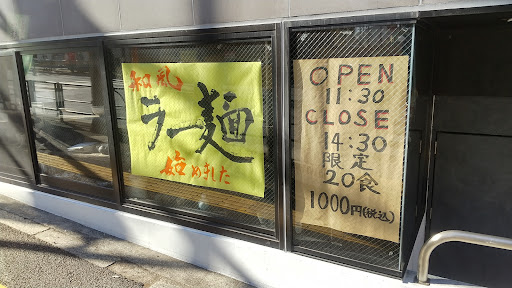 和風
ラー麺
始めました
OPEN
11:30
CLOSE
14:30
限定
20食
1000円(税込)